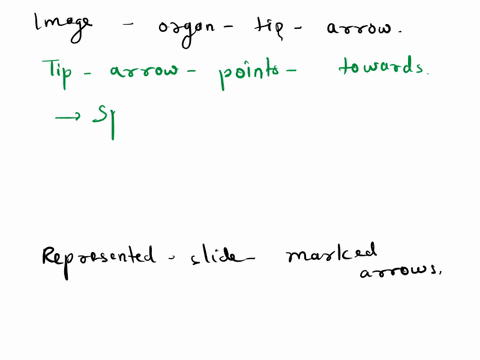 Image - organ - tip - arrow.
Tip - arrow - points - towards.
→ Sp
Represented - slide - marked
arrows.